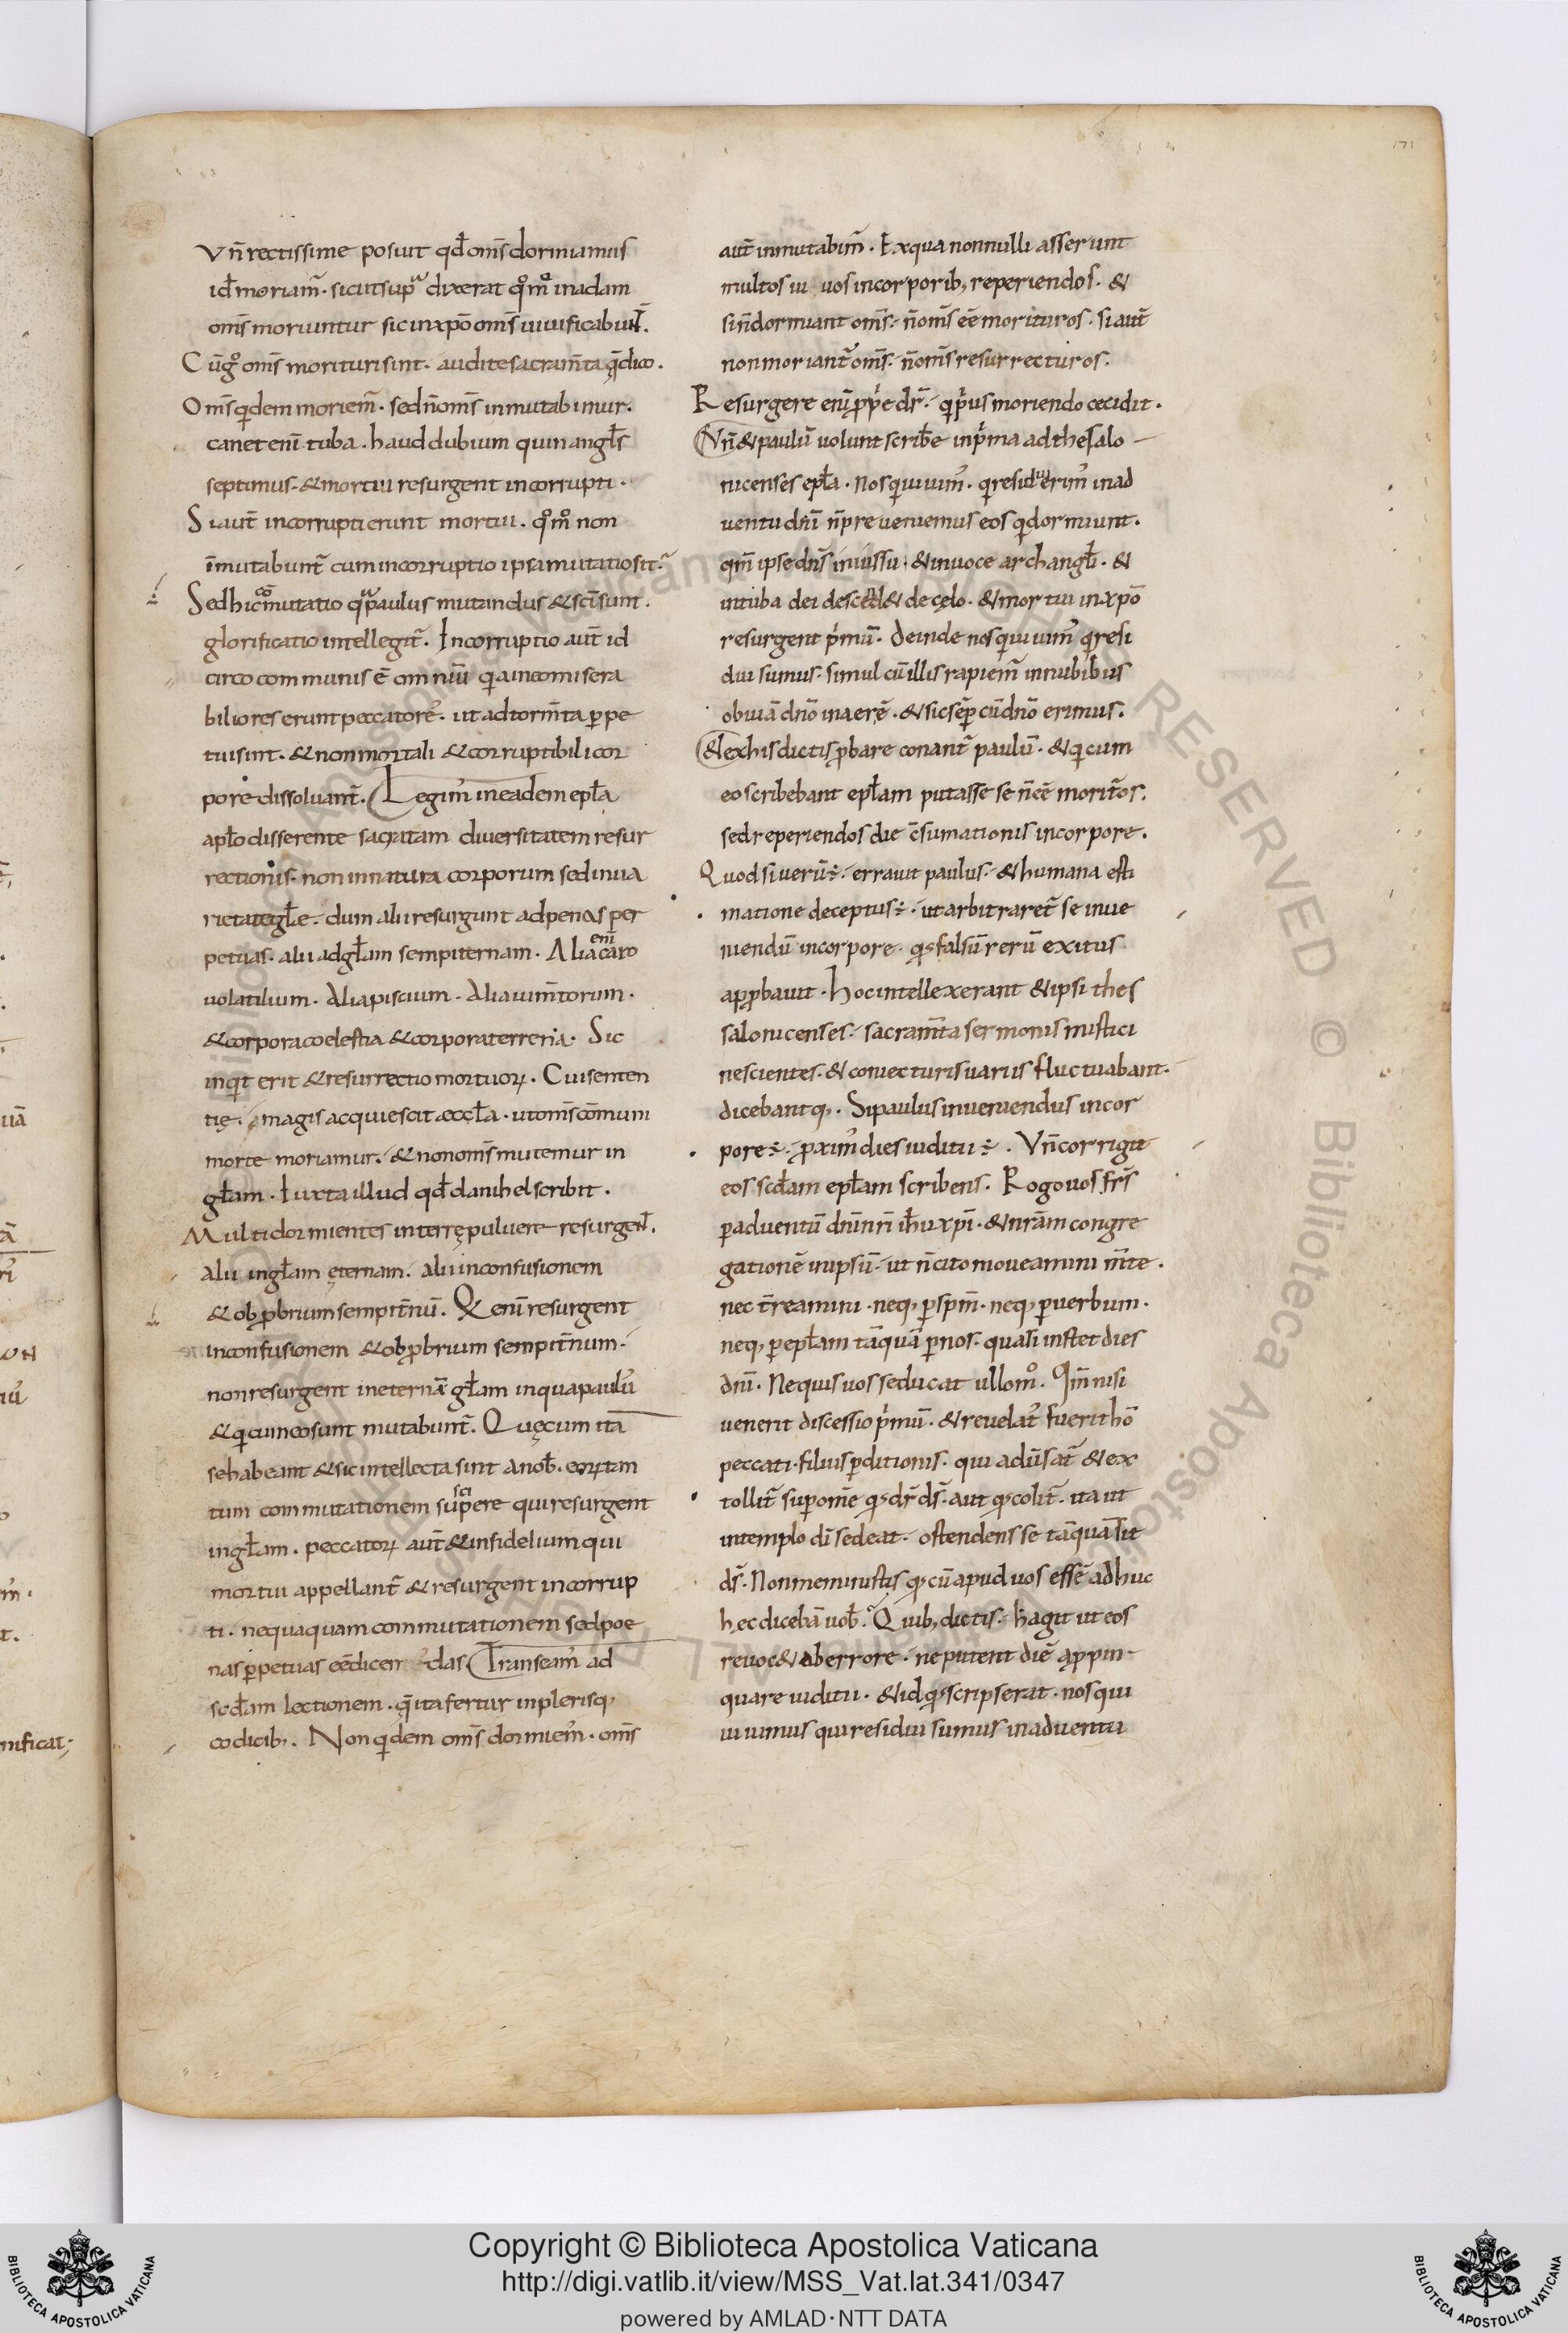 171
Vn̄ rectissime posuit qd̄ om̄s dormiamus
id̄ moriam̄. sicut supᵃ dixerat qᵒmᵒ in adam
om̄s moriuntur sic in xpō om̄s uiuificabunt̄.
Cū gᵒ om̄s morituri sint. audite sacram̄ta q̄ dico.
Om̄s qdem moriem̄. sed n̄ om̄s inmutabimur.
canet eni tuba. haud dubium quin angl̄s
septimus. & mortui resurgent incorrupti.
Si aut̄ incorrupti erunt mortui. qᵒmᵒ non
īmutabunt̄ cum incorruptio ipsa mutatio sit.
Sed hic cōmutatio qᵃ paulus mutandus & sc̄i sunt.
glorificatio intellegit̄. Incorruptio aut̄ id
circo communis ē omniū qa in eo misera
biliores erunt peccatores. ut ad torm̄ta ppe
tui sint. & non mortali & corruptibili cor
pore dissoluant̄. Legim̉ in eadem epl̄a
apl̄o disserente sacratam diuersitatem resur
rectionis. non in natura corporum sed in ua
rietate gl̄e. dum alii resurgunt ad penas per
petuas. alii ad gl̄am sempiternam. Alia enī caro
uolatilium. Alia piscium. Alia ium̄torum.
& corpora coelestia & corpora terrena. Sic
inqt erit & resurrectio mortuoꝝ. Cui senten
tię. magis acquiescit æccl̄a. ut om̄s cōmuni
morte moriamur. & non om̄s mutemur in
gl̄am. Iuxta illud qd̄ danihel scribit.
Multi dormientes in terrę puluere resurgent̄.
alii in gl̄am ęternam. alii in confusionem
& obprobrium sempit̄nū. Q enī resurgent
in confusionem & obprobrium sempit̄num.
non resurgent in eternā gl̄am in qua paulus̉
& qi cum eo sunt mutabunt̄. Quę cum ita
se habeant & sic intellecta sint a nob̄. eoꝝ tan
tum commutationem suscipere qui resurgent
in gl̄am. peccatoꝝ aut̄ & infidelium qui
mortui appellant̄ & resurgent incorrup
ti. nequaquam commutationem sed poe
nas ppetuas eē dicendas. Transeam̉ ad
scd̄am lectionem. q̄ ita fertur in plerisq;
codicib;. Non qidem om̄s dormiem̉. om̄s
aut̄ inmutabim̄. Ex qua nonnulli asserunt
multos uiuos in corporib; reperiendos. &
si n̄ dormiant om̄s. n̄ om̄s eē morituros. si aut̄
non moriant̄ om̄s. n̄ om̄s resurrecturos.
Resurgere enī pprie dr̄. qi prius moriendo cecidit.
Vn̄ & paulū uolunt scrib̄e in prima ad thesalo
nicenses epl̄a. Nos qi uiuim̉. qi residui erim̉ in ad
uentu dn̄i n̄ preueniemus eos qi dormiunt.
qm̄ ipse dn̄s in iussu. & in uoce archangl̄i. &
in tuba dei descend& de cęlo. & mortui in xpō
resurgent primū. Deinde nos qi uiuim̉ qi resi
dui sumus. simul cū illis rapiem̄ in nubibus
obuiā dn̄o in aerē. & sic sēp cū dn̄o erimus.
& ex his dictis pbare conant̄ paulū. & qi cum
eo scribebant epl̄am putasse se n̄ eē morit̄os.
sed reperiendos die c̄sumationis in corpore.
Quod si uerū ÷. errauit paulus. & humana esti
matione deceptus ÷. ut arbitraret̄ se inue
niendū in corpore. qd falsū rerū exitus
appbauit. Hoc intellexerant & ipsi thes
salonicenses. sacram̄ta sermonis mistici
nescientes. & coniecturis uariis fluctuabant.
dicebantq;. Si paulus inueniendus in cor
pore ÷. pxim̉ dies iuditii ÷. Vn̄ corrigit
eos scd̄am epl̄am scribens. Rogo uos frs̄
p aduentū dn̄i nr̄i ih̄u xpī. & nr̄am congre
gationē in ipsū. ut n̄ cito moueamini m̄te.
nec t̄reamini. neq; p spm̄. neq; p uerbum.
neq; p epl̄am tāquā p nos. quasi instet dies
dn̄i. Ne quis uos seducat ullo mᵒ. Qm̄ nisi
uenerit discessio primū. & reuelat̉ fuerit hō
peccati. filius pditionis. qui adūsat̄ & ex
tollit̄ sup om̄e qd dr̄ ds̄. aut qd colit̄. ita ut
in templo dī sedeat. ostendens se tāquā sit
ds̄. Non meministis qd cū apud uos essē adhuc
hęc dicebā uob̄. Quib; dictis. hagit ut eos
reuoc& ab errore. ne putent diē appin
quare iuditii. & id qd scripserat. nos qui
uiuimus qui residui sumus in aduentu
Copyright © Biblioteca Apostolica Vaticana
http://digi.vatlib.it/view/MSS_Vat.lat.341/0347
powered by AMLAD·NTT DATA